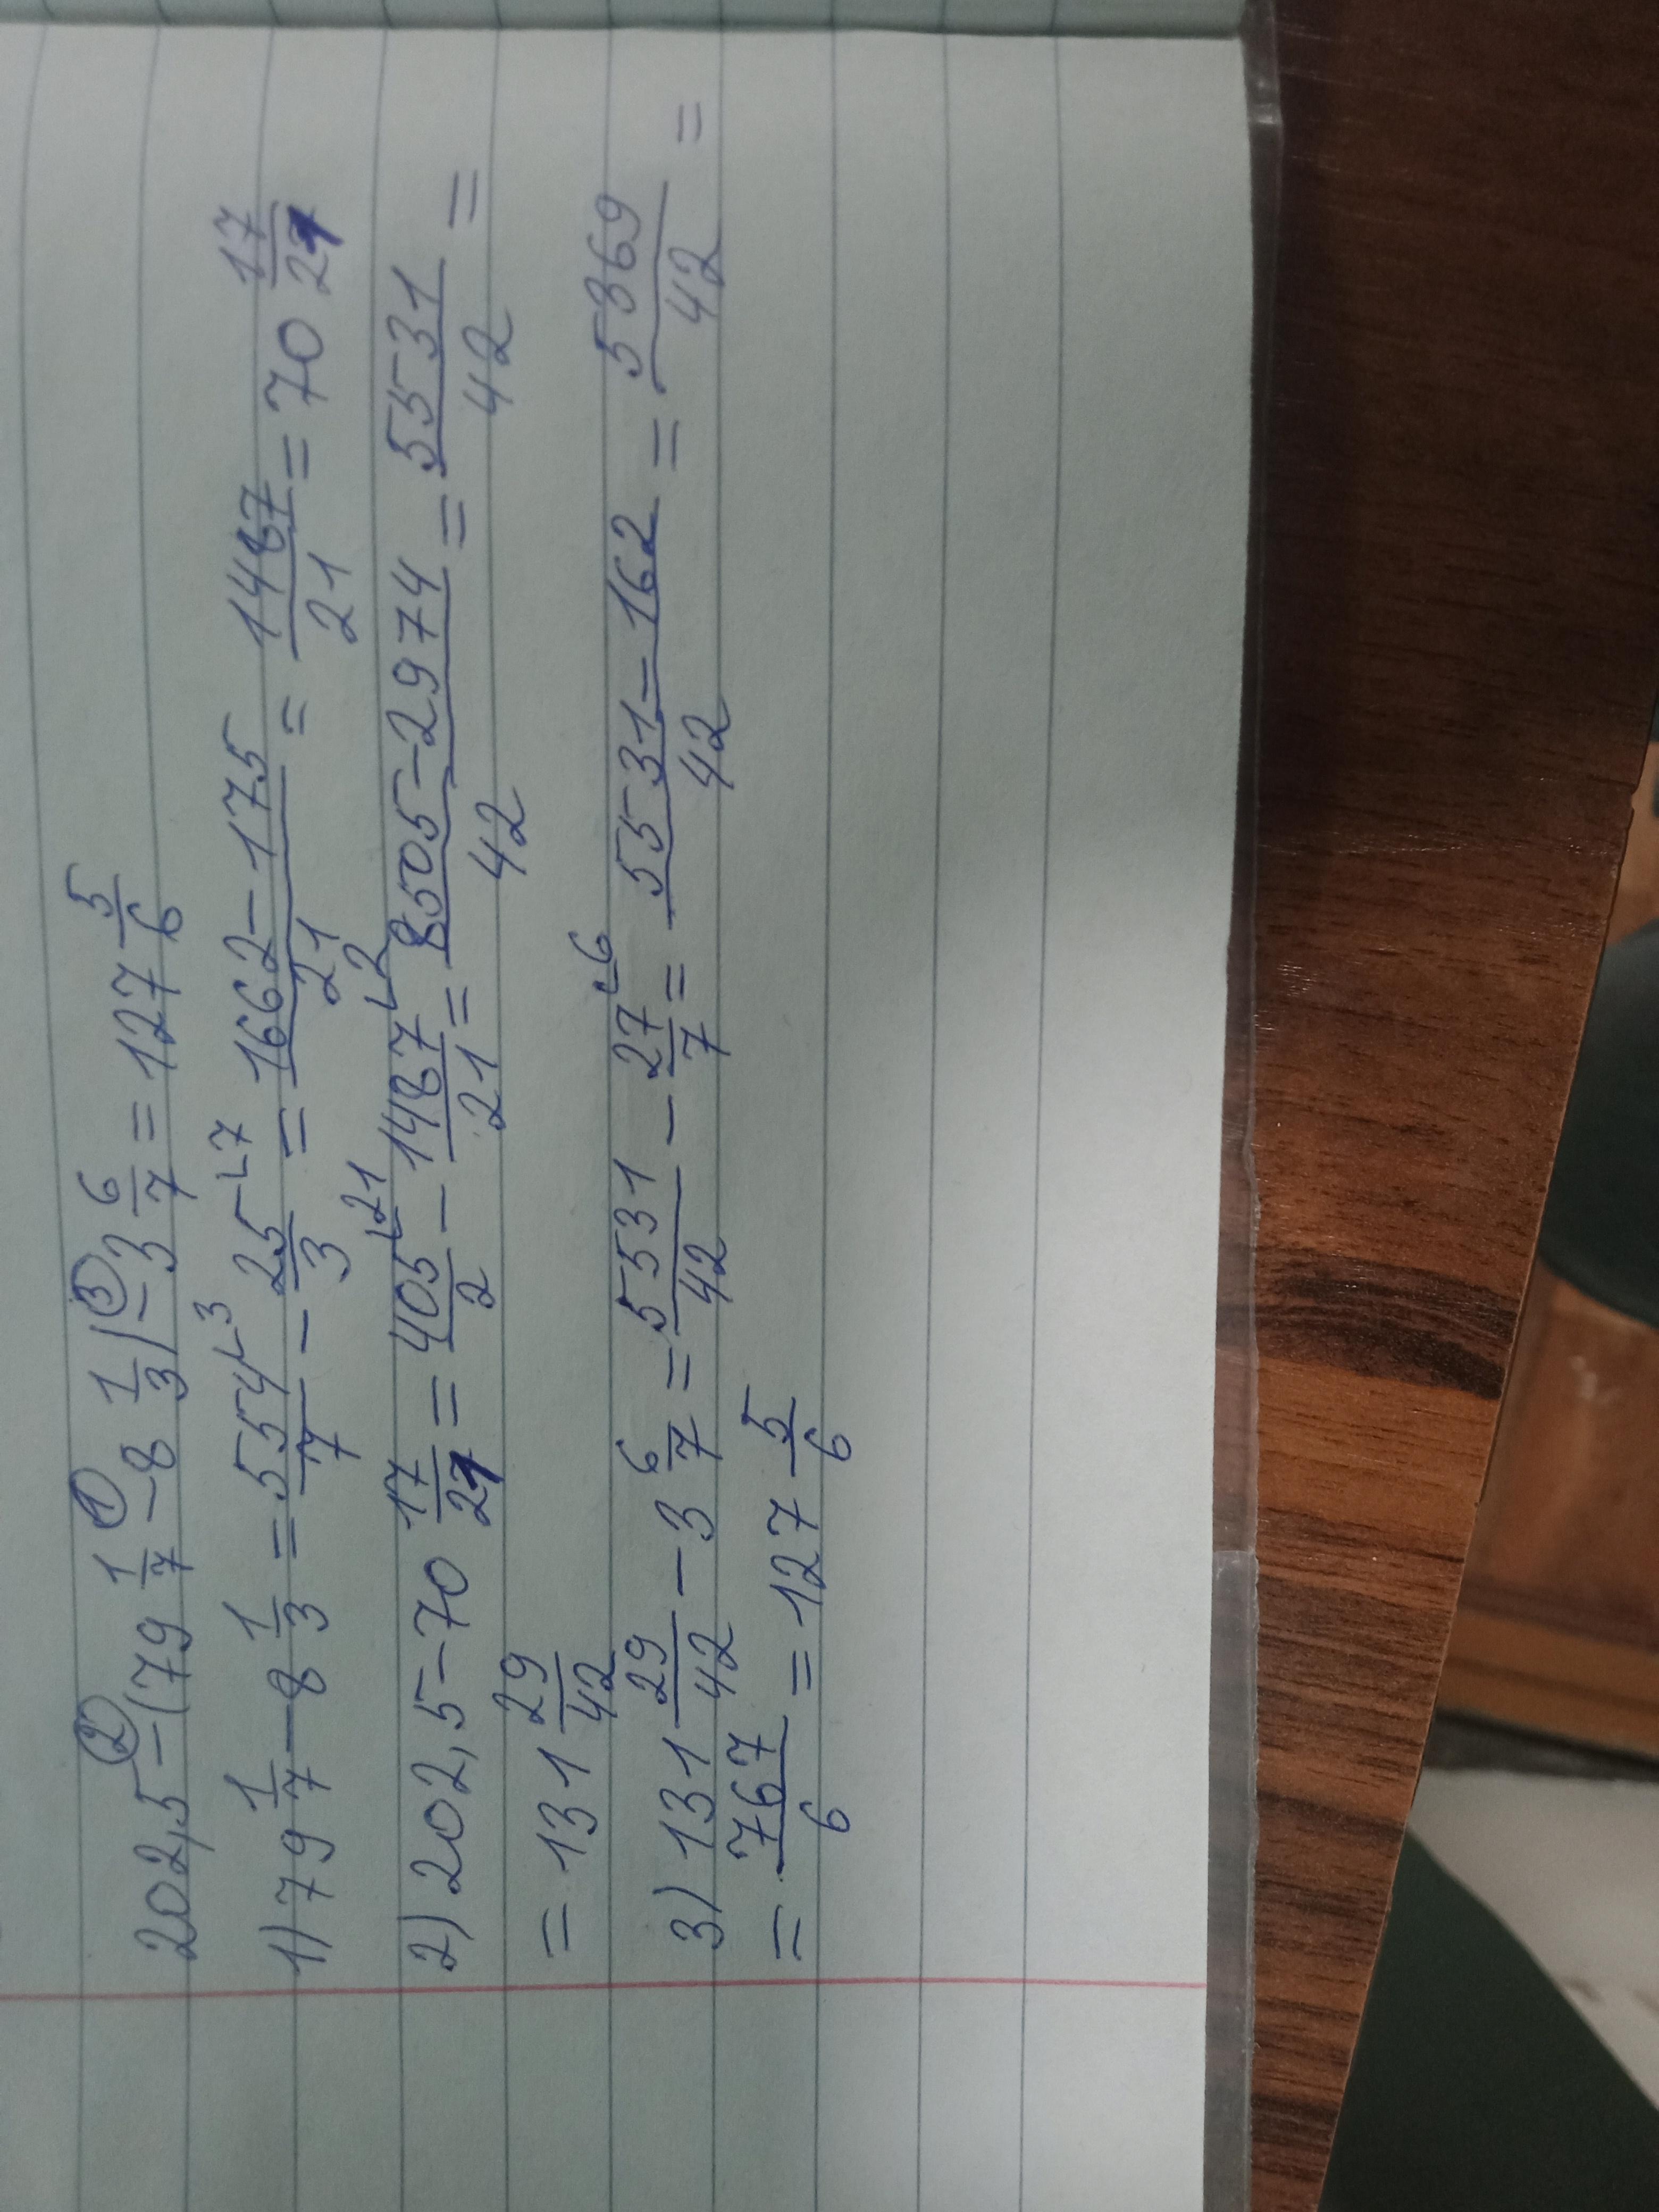 202,5 - (79 1/7 - 8 1/3) - 3 6/7 = 127 5/6
1) 79 1/7 - 8 1/3 = 554/7 ∟3 - 25/3 ∟7 = 1662-175/21 = 1487/21 = 70 17/21
2) 202,5 - 70 17/21 = 405/2 ∟21 - 1487/21 ∟2 = 8505-2974/42 = 5531/42 =
= 131 29/42
3) 131 29/42 - 3 6/7 = 5531/42 - 27/7 ∟6 = 5531-162/42 = 5369/42 =
= 767/6 = 127 5/6